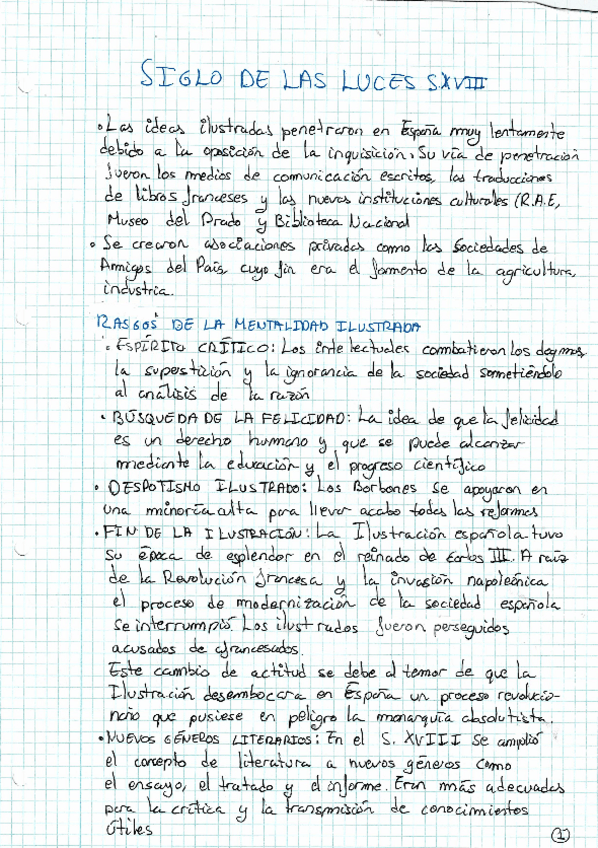 SIGLO DE LAS LUCES SXVIII
• Las ideas ilustradas penetraron en España muy lentamente
debido a la oposición de la inquisición. Su vía de penetración
fueron los medios de comunicación escritos, las traducciones
de libros franceses y las nuevas instituciones culturales (R.A.E,
Museo del Prado y Biblioteca Nacional
• Se crearon asociaciones privadas como las Sociedades de
Amigos del País, cuyo fin era el fomento de la agricultura,
industria.
RASGOS DE LA MENTALIDAD ILUSTRADA
• ESPÍRITO CRÍTICO: Los intelectuales combatieron los dogmas
la superstición y la ignorancia de la sociedad sometiéndolo
al análisis de la razón
• BÚSQUEDA DE LA FELICIDAD: La idea de que la felicidad
es un derecho humano y que se puede alcanzar
mediante la educación y el progreso científico
• DESPOTISMO ILUSTRADO: Los Borbones se apoyaron en
una minoría culta para llevar acabo todas las reformas
• FIN DE LA ILUSTRACIÓN: La Ilustración española tuvo
su época de esplendor en el reinado de Carlos III. A raiz
de la Revolución francesa y la invasión napoleónica
el proceso de modernización de la sociedad española
se interrumpió. Los ilustrados fueron perseguidos
acusados de afrancesados.
Este cambio de actitud se debe al temor de que la
Ilustración desembocara en España un proceso revolucio-
nario que pusiese en peligro la monarquía absolutista.
• NUEVOS GÉNEROS LITERARIOS: En el S. XVIII se amplió
el concepto de literatura a nuevos géneros como
el ensayo, el tratado y el informe. Eran más adecuados
para la crítica y la transmisión de conocimientos
útiles
1